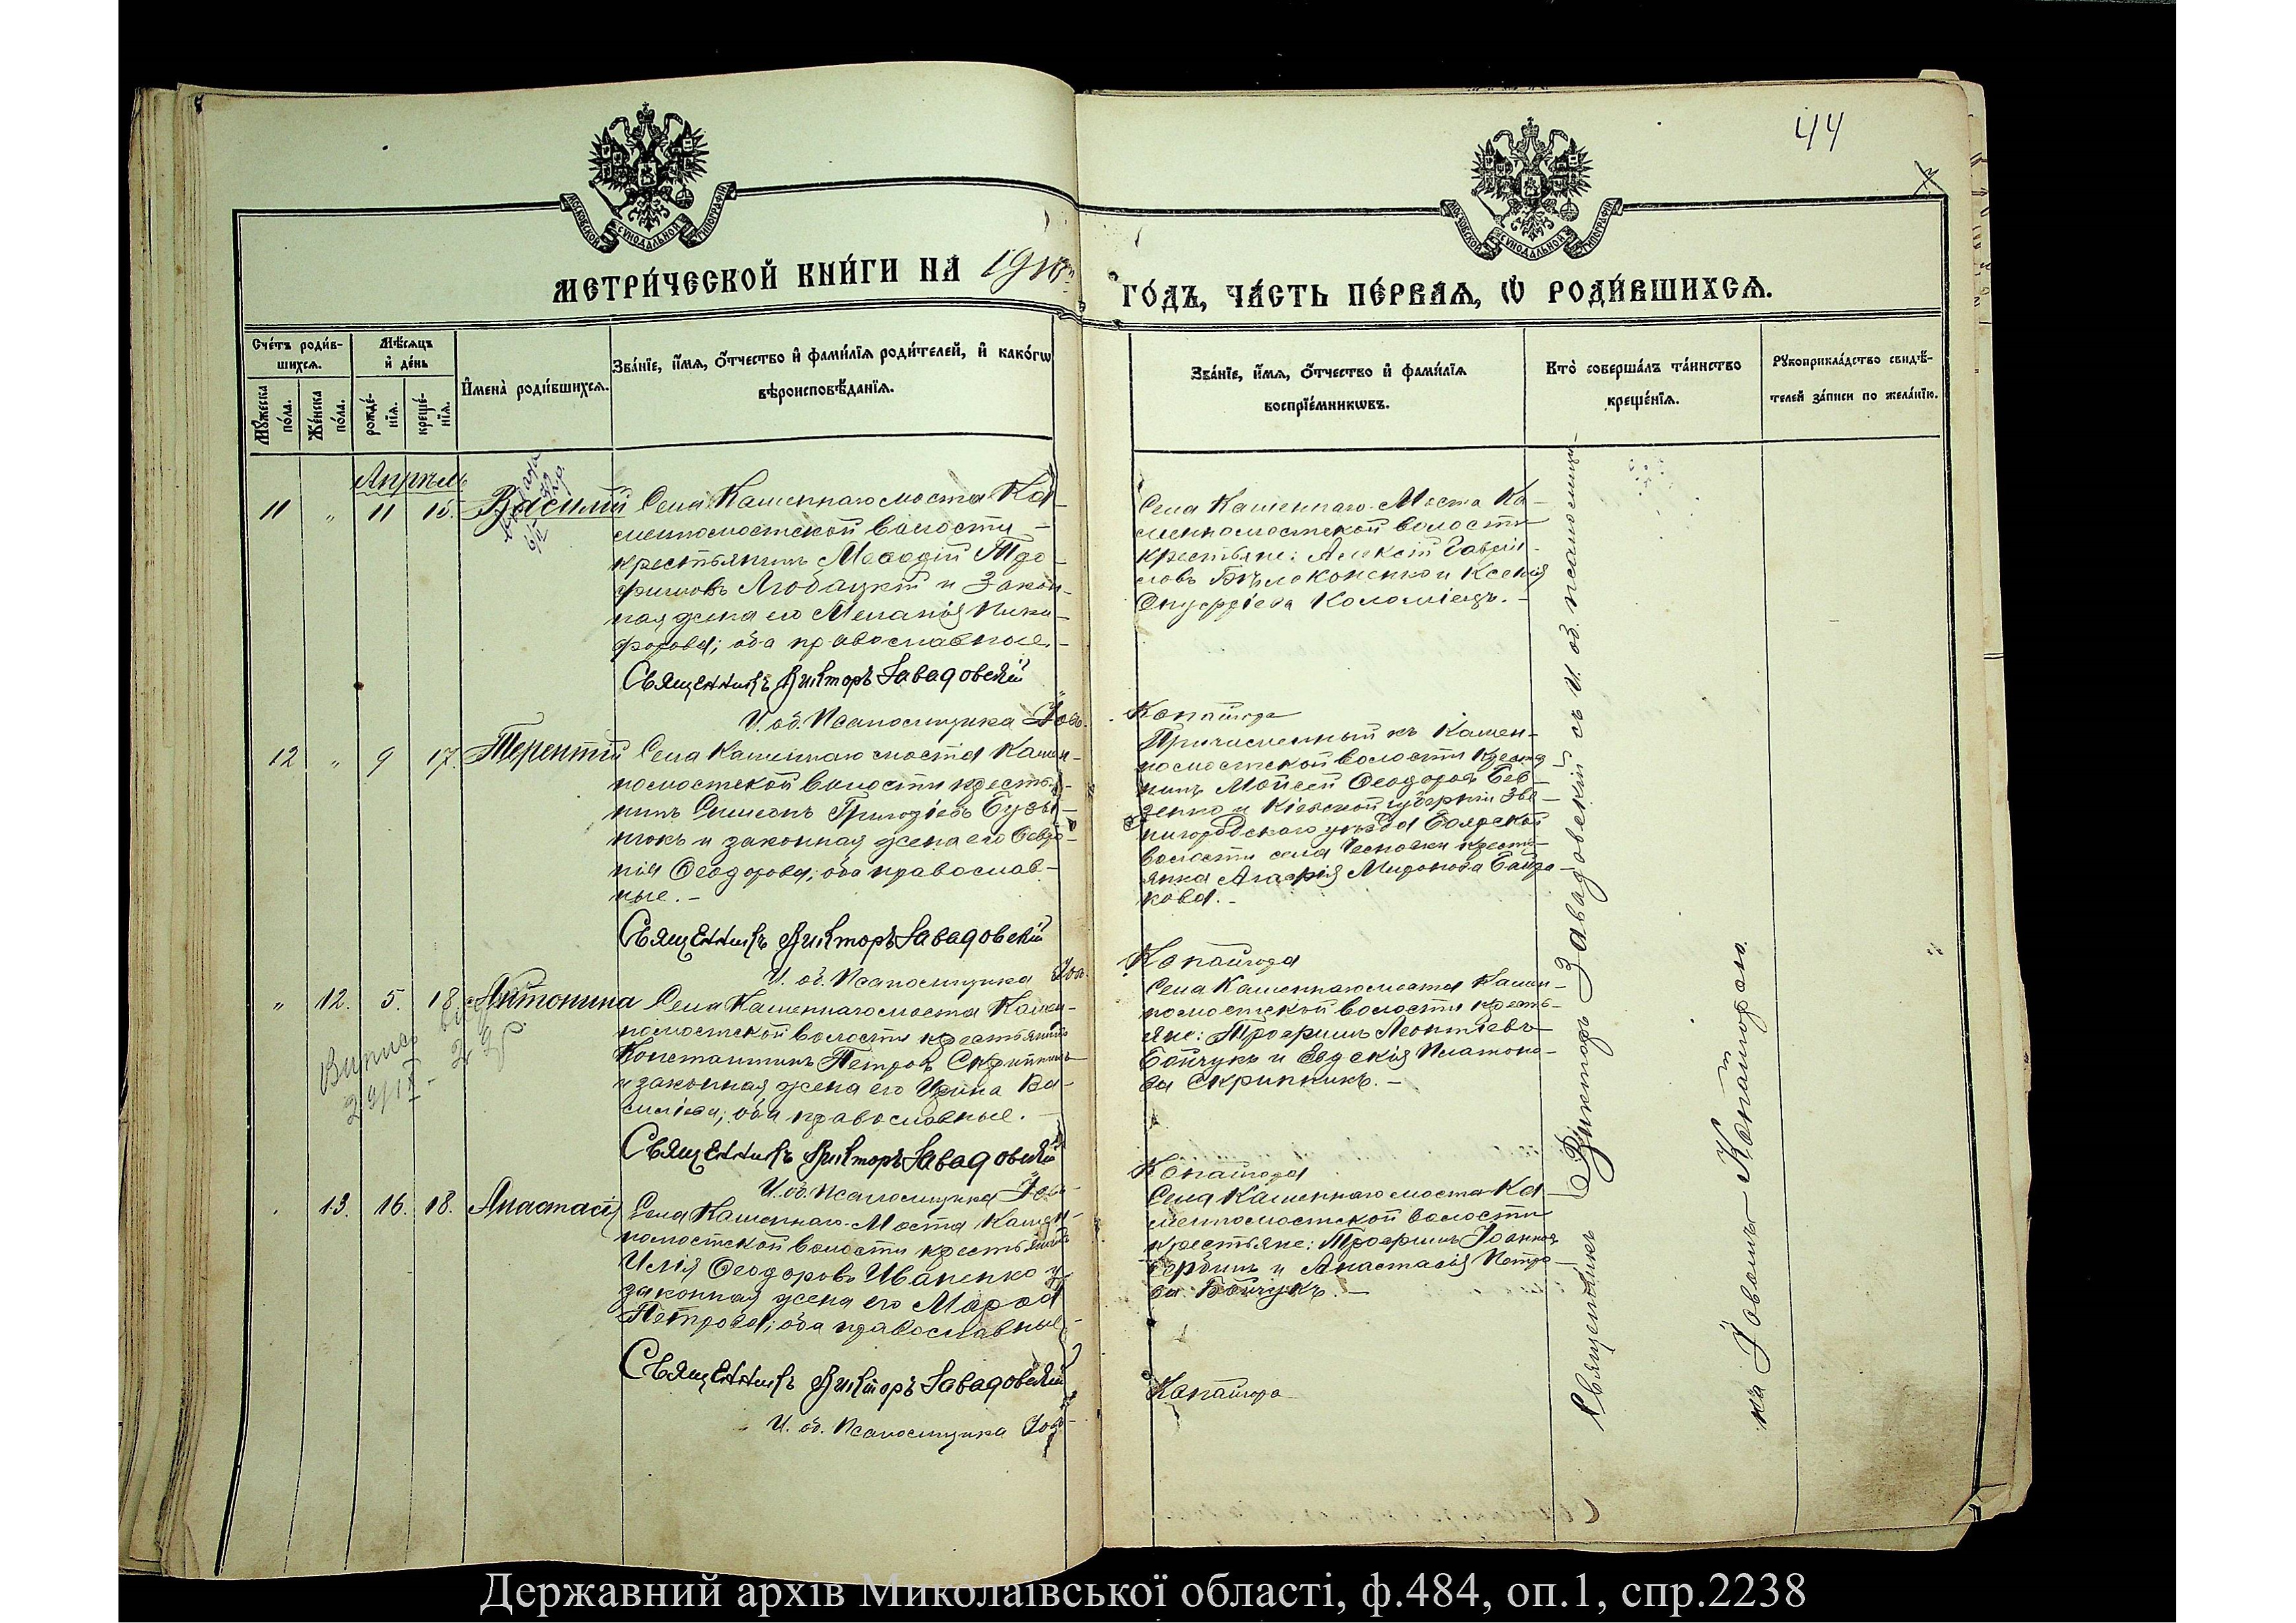 44
МОСКОВСКОЙ СУНОДАЛЬНОЙ ТИПОГРАФІИ
МОСКОВСКОЙ СУНОДАЛЬНОЙ ТИПОГРАФІИ
МЕТРИ́ЧЕСКОЙ КНИ́ГИ НА
ГО́ДЪ, ЧА́СТЬ ПЕ́РВАѦ, Ѡ РОДИ́ВШИХСѦ.
Сче́тъ роди́в-
шихсѧ.
Мꙋжеска по́ла.
Же́нска по́ла.
Мѣ́сѧцъ
и҆ де́нь
рожде́-
нїѧ.
креще́-
нїѧ.
И҆мена̀ роди́вшихсѧ.
Зва́нїе, и҆́мѧ, ѻ҆́тчество и҆ фами́лїѧ роди́телей, и҆ како́гѡ
вѣроисповѣ́данїѧ.
Зва́нїе, и҆́мѧ, ѻ҆́тчество и҆ фами́лїѧ
воспрїе́мникѡвъ.
Кто̀ соверша́лъ та́инство
креще́нїѧ.
Рꙋкоприкла́дство свидѣ́-
телей за́писи по жела́нїю.
Апрѣль
11 " 11 15. Василій
Села Каменнаго моста Ка-
менномостской волости
крестьянинъ Меѳодій Тро-
фимовъ Любацкій и закон-
ная жена его Меланія Ники-
форова; оба православные.
Священникъ Викторъ Завадовскій
И. об. Псаломщика Іовъ
Села Каменнаго Моста Ка-
менномостской волости
крестьяне: Алексій Гаврiи-
ловъ Бѣлоконенко и Ксенія
Онуфріева Коломіецъ.
Копайгора
12 " 9 17. Терентій
Села Каменнаго моста Камен-
номостской волости крестья-
нинъ Симеонъ
и законная жена его Евфро-
нія Ѳеодорова; оба православ-
ные.
Священникъ Викторъ Завадовскій
И. об. Псаломщика Іовъ
Причисленный къ Камен-
номостской волости крестья
нинъ Моисей Ѳеодоровъ
и Кіевской губерніи Зве-
нигородскаго уѣзда Боярской
волости села Чесновки кресть-
янка Агафія Миронова Байра-
кова.
Копайгора
" 12. 5. 18. Антонина
Села Каменнаго моста Камен-
номостской волости крестьянинъ
Константинъ Петровъ Скрипникъ
и законная жена его Ирина Ва-
силіева; оба православные.
Священникъ Викторъ Завадовскій
И. об. Псаломщика Іовъ
Села Каменнаго моста Камен-
номостской волости кресть-
яне: Трофимъ Леонтіевъ
Бойчукъ и Евдокія Платоно-
ва Скрипникъ.
Копайгора
13. 16. 18. Анастасія
Села Каменнаго Моста Камен-
номостской волости крестьянинъ
Илія Ѳеодоровъ Иваненко и
законная жена его Марѳа
Петрова; оба православные.
Священникъ Викторъ Завадовскій
И. об. Псаломщика Іовъ
Села Каменнаго моста Ка-
менномостской волости
крестьяне: Трофимъ Іоанновъ
и Анастасія Петро-
ва Бойчукъ.
Копайгора
Священникъ Викторъ Завадовскій съ И. об. псаломщи-
ка Іовомъ Копайгорою.
Державний архів Миколаївської області, ф.484, оп.1, спр.2238